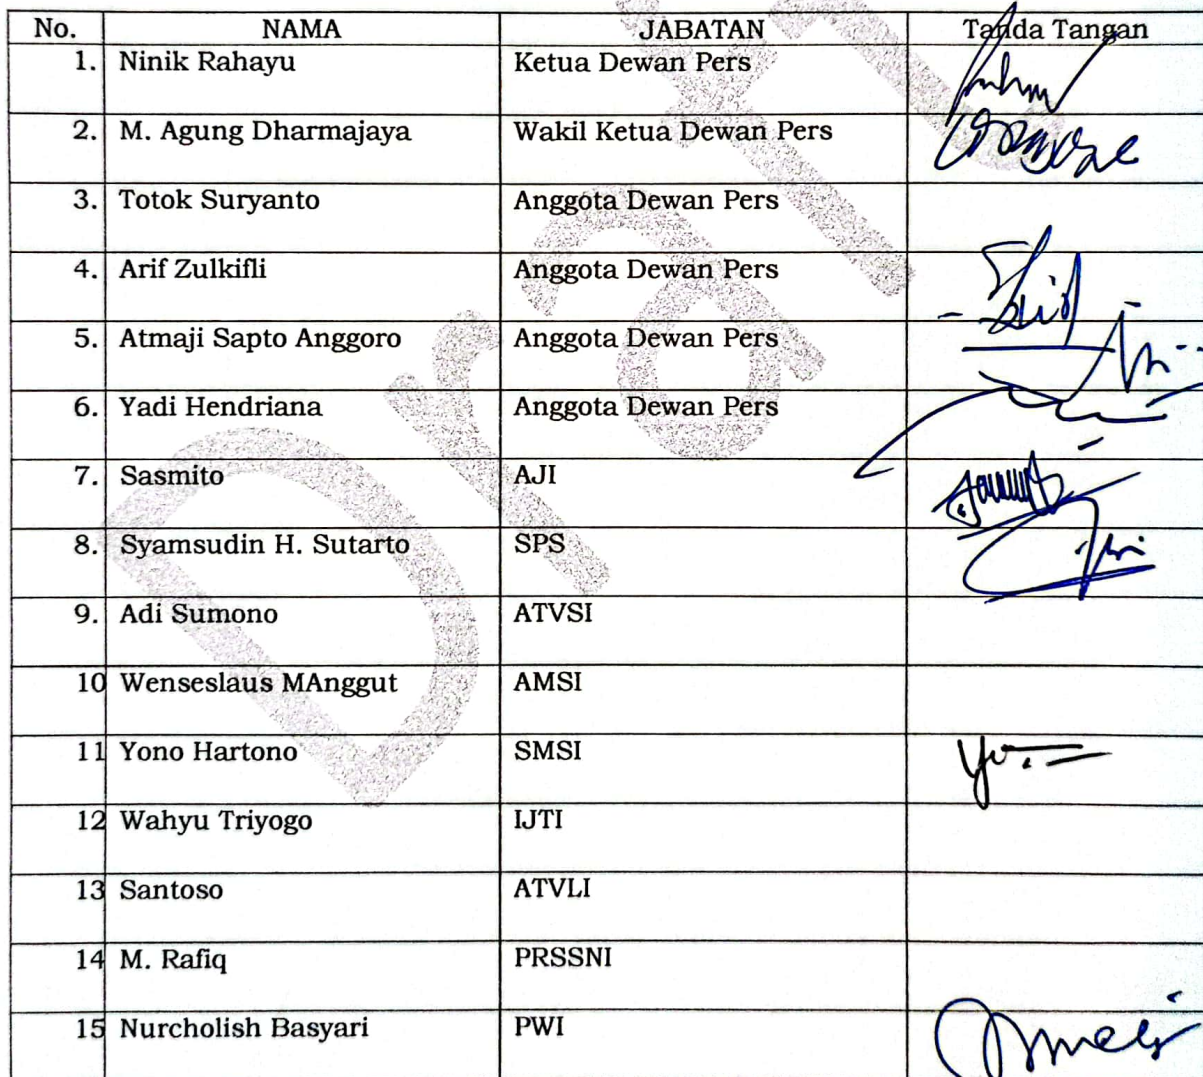 No. NAMA JABATAN Tanda Tangan
1. Ninik Rahayu Ketua Dewan Pers
2. M. Agung Dharmajaya Wakil Ketua Dewan Pers
3. Totok Suryanto Anggota Dewan Pers
4. Arif Zulkifli Anggota Dewan Pers
5. Atmaji Sapto Anggoro Anggota Dewan Pers
6. Yadi Hendriana Anggota Dewan Pers
7. Sasmito AJI
8. Syamsudin H. Sutarto SPS
9. Adi Sumono ATVSI
10 Wenseslaus MAnggut AMSI
11 Yono Hartono SMSI
12 Wahyu Triyogo IJTI
13 Santoso ATVLI
14 M. Rafiq PRSSNI
15 Nurcholish Basyari PWI
Draft